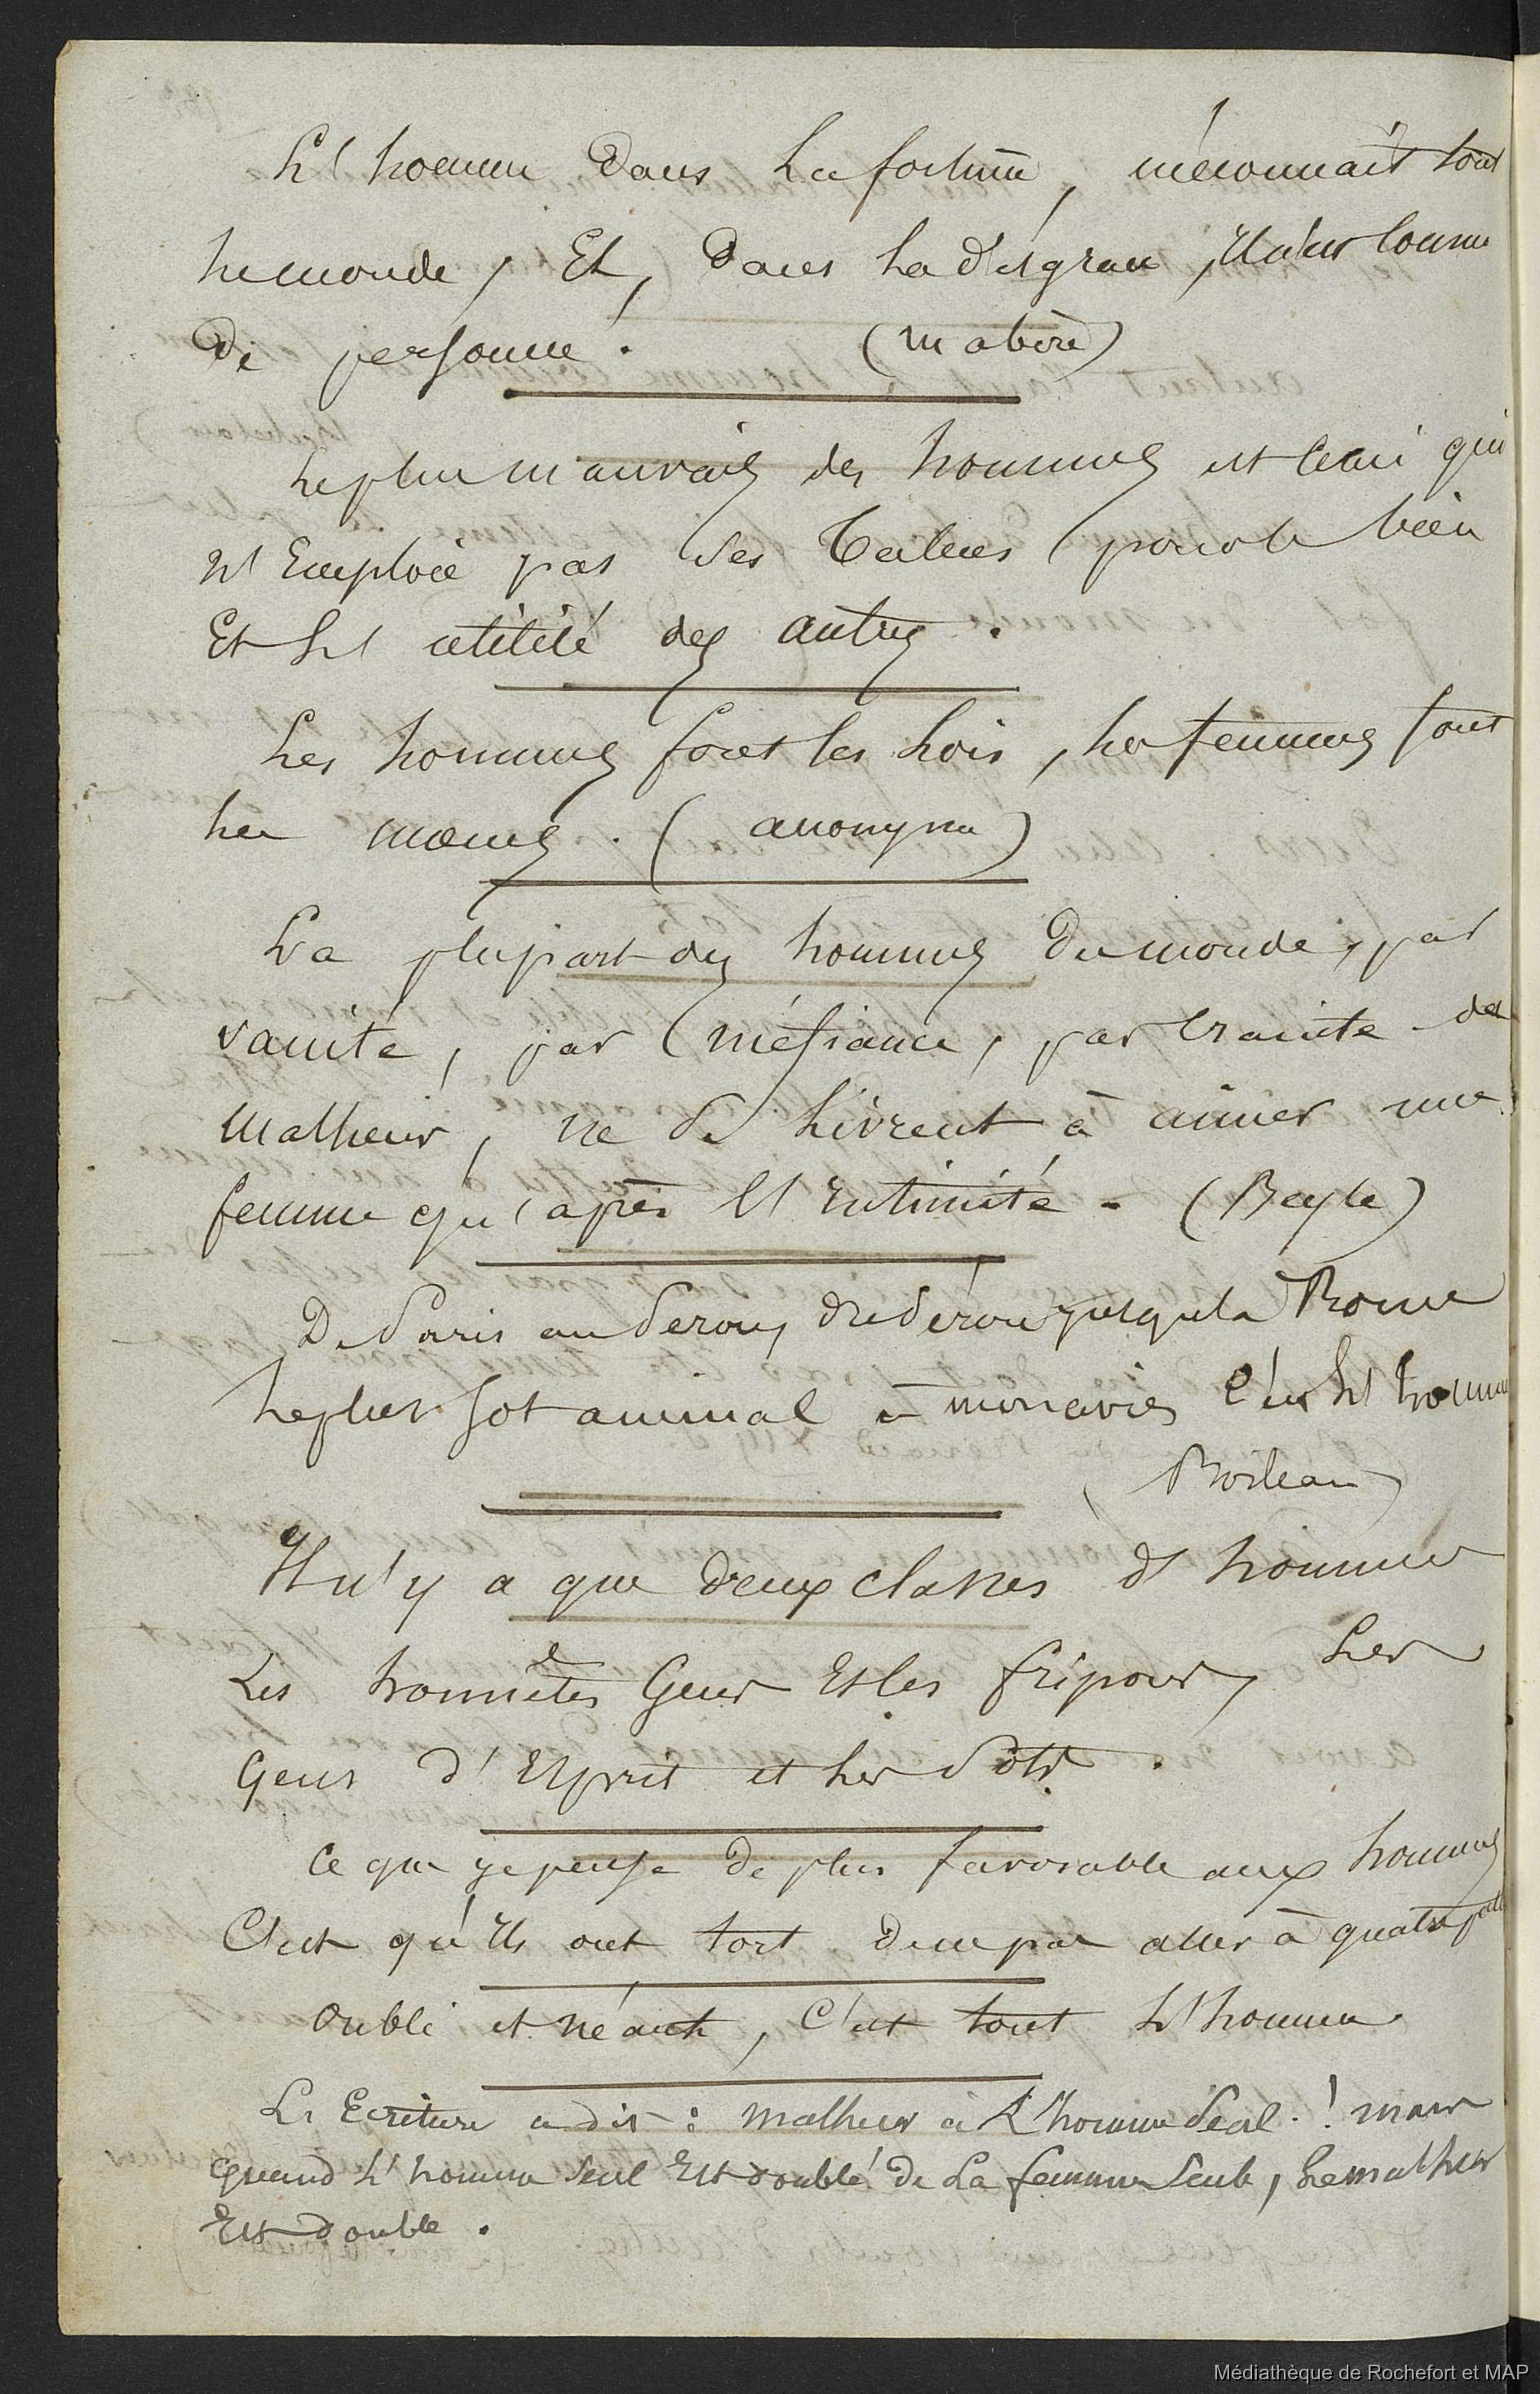 L' homme dans La fortune, méconnait tout
Le monde, Et, dans La disgrace, Il n'est connu
De personne. (mabire)
Le plus mauvais des hommes est celui qui
N' Emploie pas Ses Talens pour le bien
Et L' utilité des autres.
Les hommes font les Lois, les femmes font
Les mœurs. (anonyme)
La plupart des hommes du monde, par
vanité, par méfiance, par crainte de
Malheur, ne Se Livrent à aimer une
femme qu'après l' intimité. (Beyle)
De Paris au Pérou, du Pérou jusqu'a Rome
Le plus Sot animal à mon avis C'est L' homme
(Boileau)
Il n'y a que deux classes d' hommes
Les honnêtes Gens Et les fripons, Les
Gens d' Esprit et Les Sots.
Ce que je pense De plus favorable aux hommes
C'est qu' Ils ont tort de ne pas aller à quatre pattes
Oubli et néant, C'est tout L' homme
L' Ecriture a dit : malheur à L'homme Seul ! mais
quand L' homme Seul Est doublé de La femme Seule, Le malheur
Est double.
Médiathèque de Rochefort et MAP